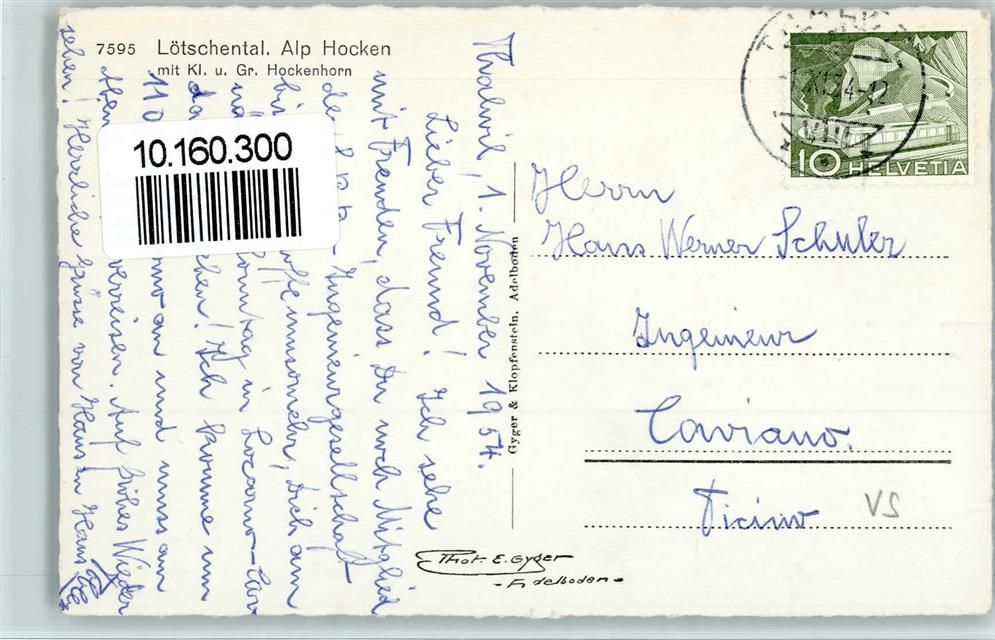 7595 Lötschental. Alp Hocken
mit Kl. u. Gr. Hockenhorn
10.160.300
Thalwil, 1. November 1954.
Lieber Freund! Ich sehe
mit Freuden, dass Du noch Mitglied
Ingenieurgesellschaft
hoffe umsomehr, Dich am
Sonntag in Locarno-
Ich komme um
110 an und muss am
verreisen. Auf frohes Wieder
sehen! Herrliche Grüsse von Haus zu Haus
Gyger & Klopfenstein, Adelboden
Phot. E. Gyger
- Adelboden -
10 HELVETIA
Herrn
Hans Werner Schuler
Ingenieur
Caviano.
Ticino
VS